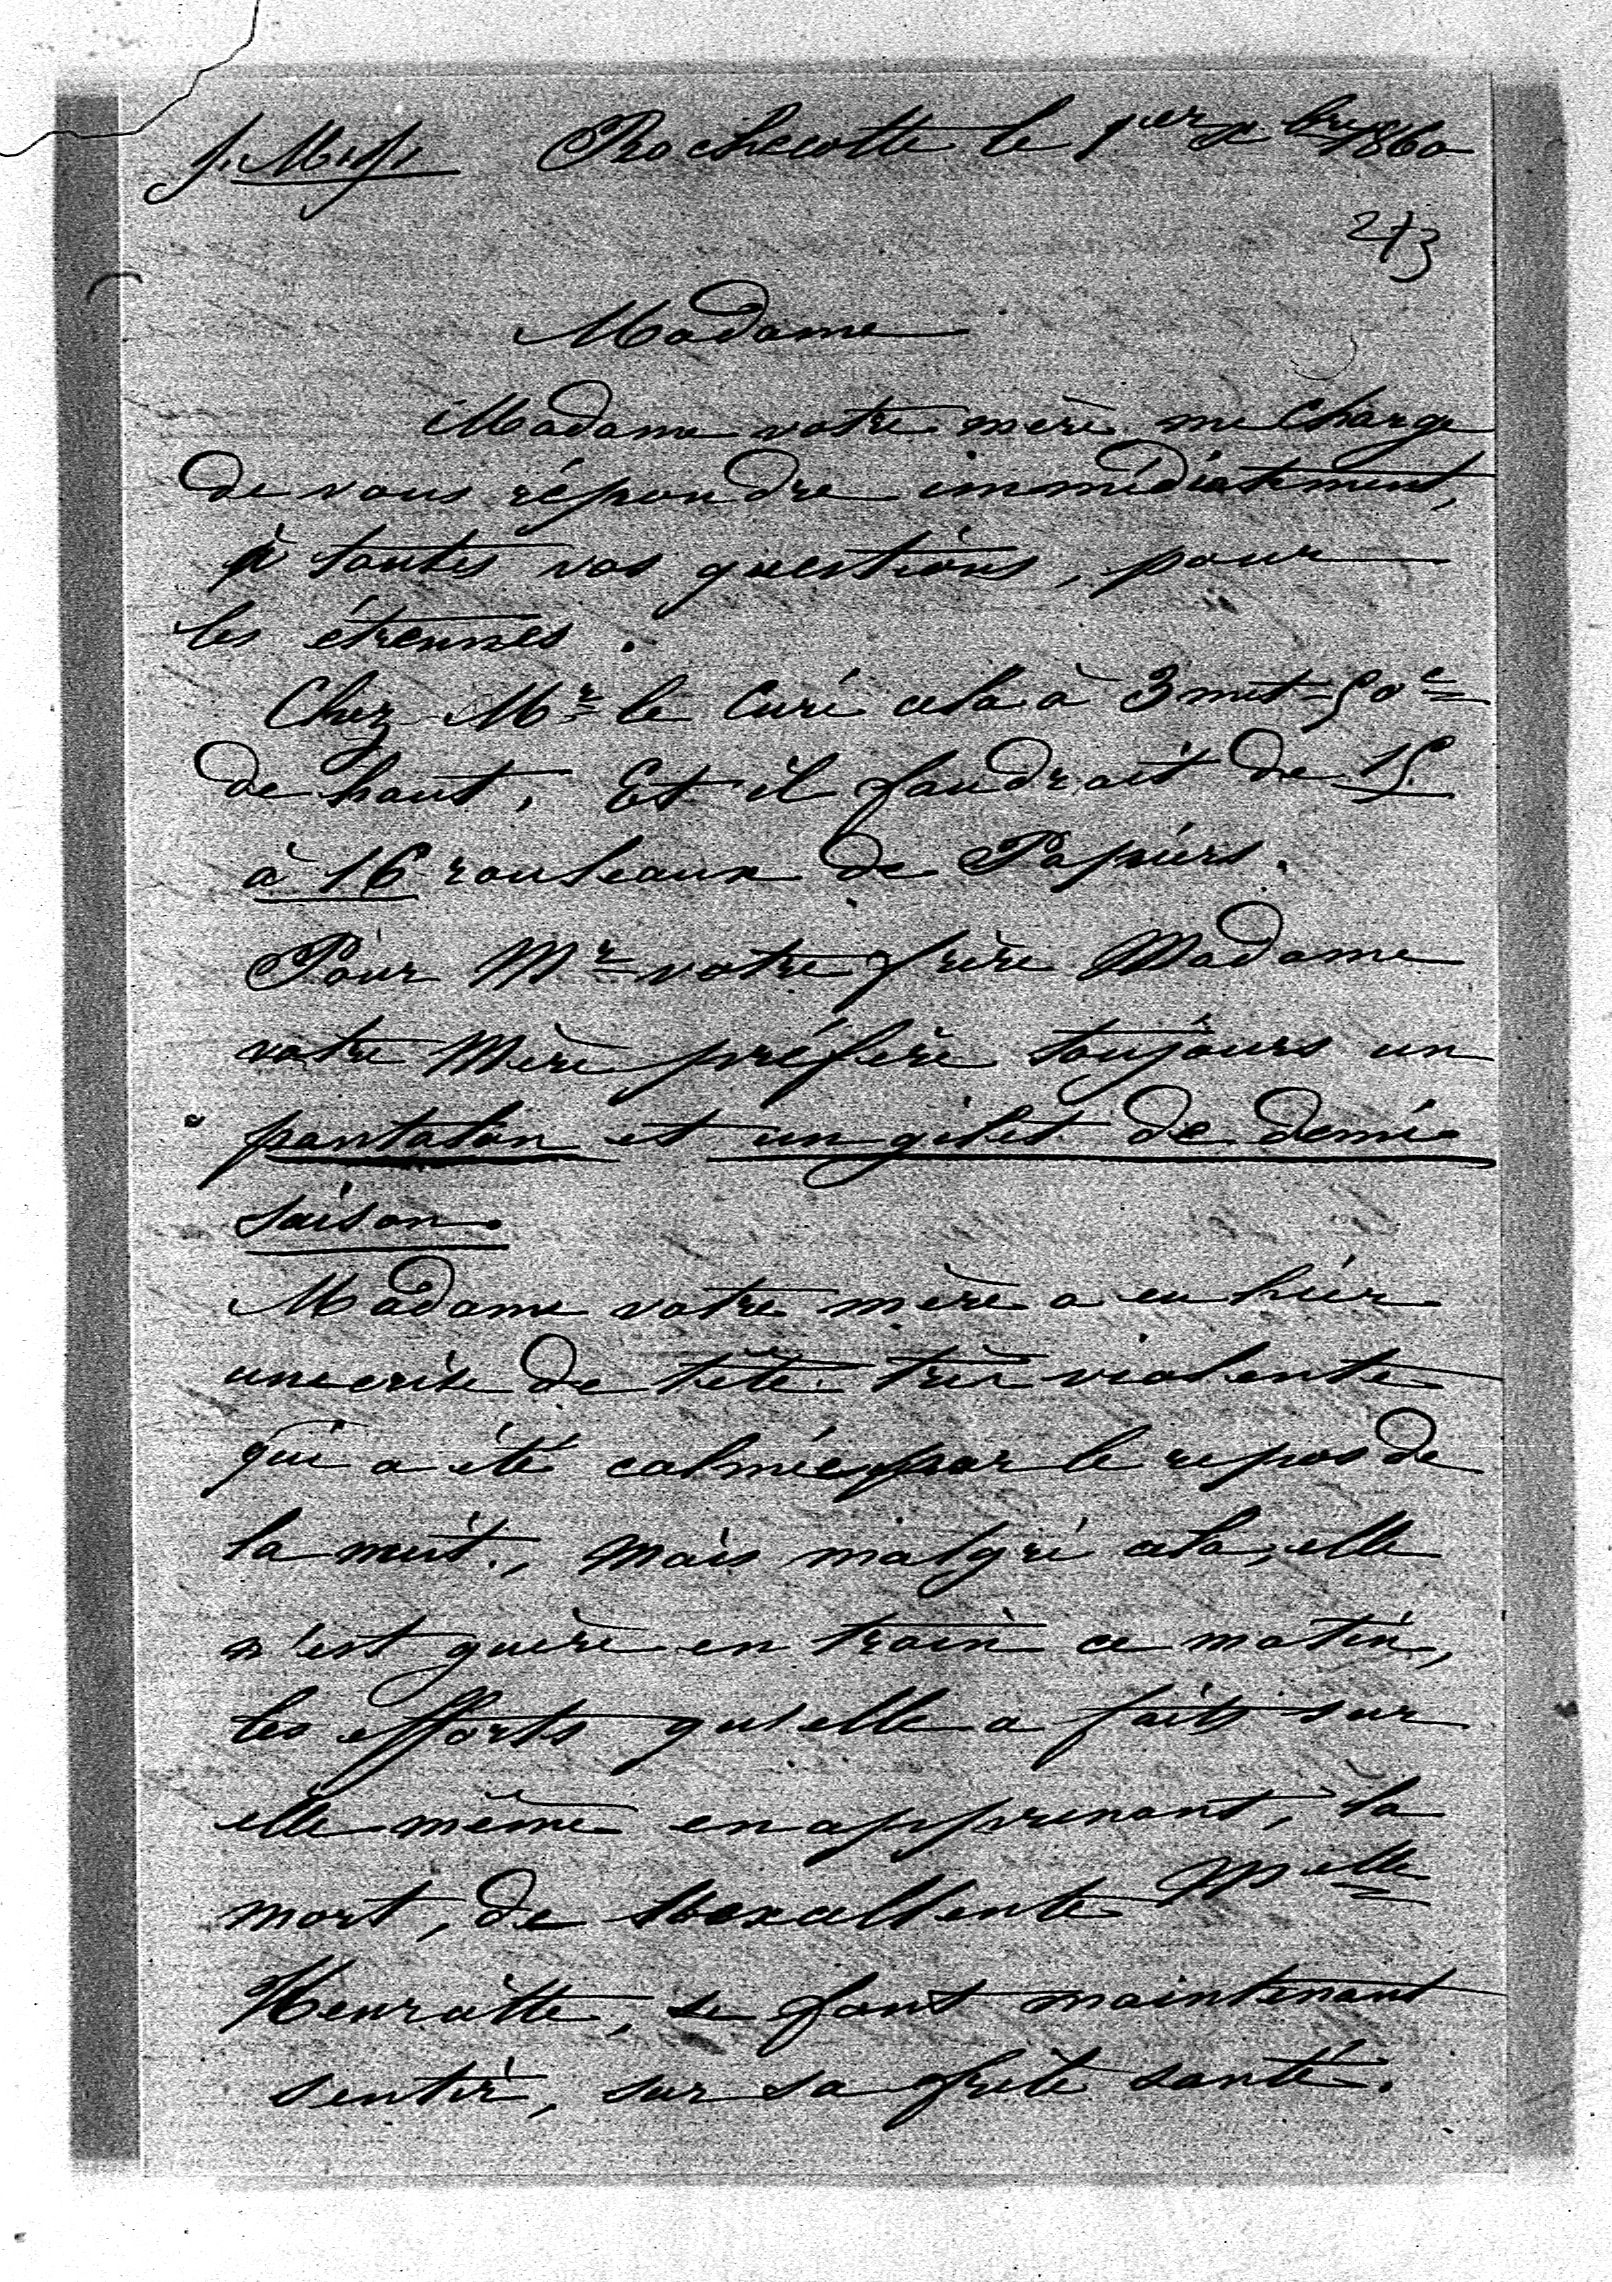 J. M. J. Rochecotte le 1er xbre 1860
273
Madame
Madame votre mère me charge
de vous répondre immédiatement,
à toutes vos questions, pour
les étrennes.
Chez Mr le Curé cela à 3 met= 50c
de haut, Et il faudrait de 15
à 16 rouleaux de Papiers.
Pour Mr votre frère Madame
votre Mère préfère toujours un
pantalon et un gilet de demie
saison.
Madame votre mère a eu hier
une crise de tête très violente
qui a été calmée par le repos de
la nuit., mais malgré cela, elle
n'est guère en train ce matin,
les efforts qu'elle a faits sur
elle même en apprenant, la
mort, de l'excellente Melle
Henratte, se font maintenant
sentir, sur sa frêle santé.